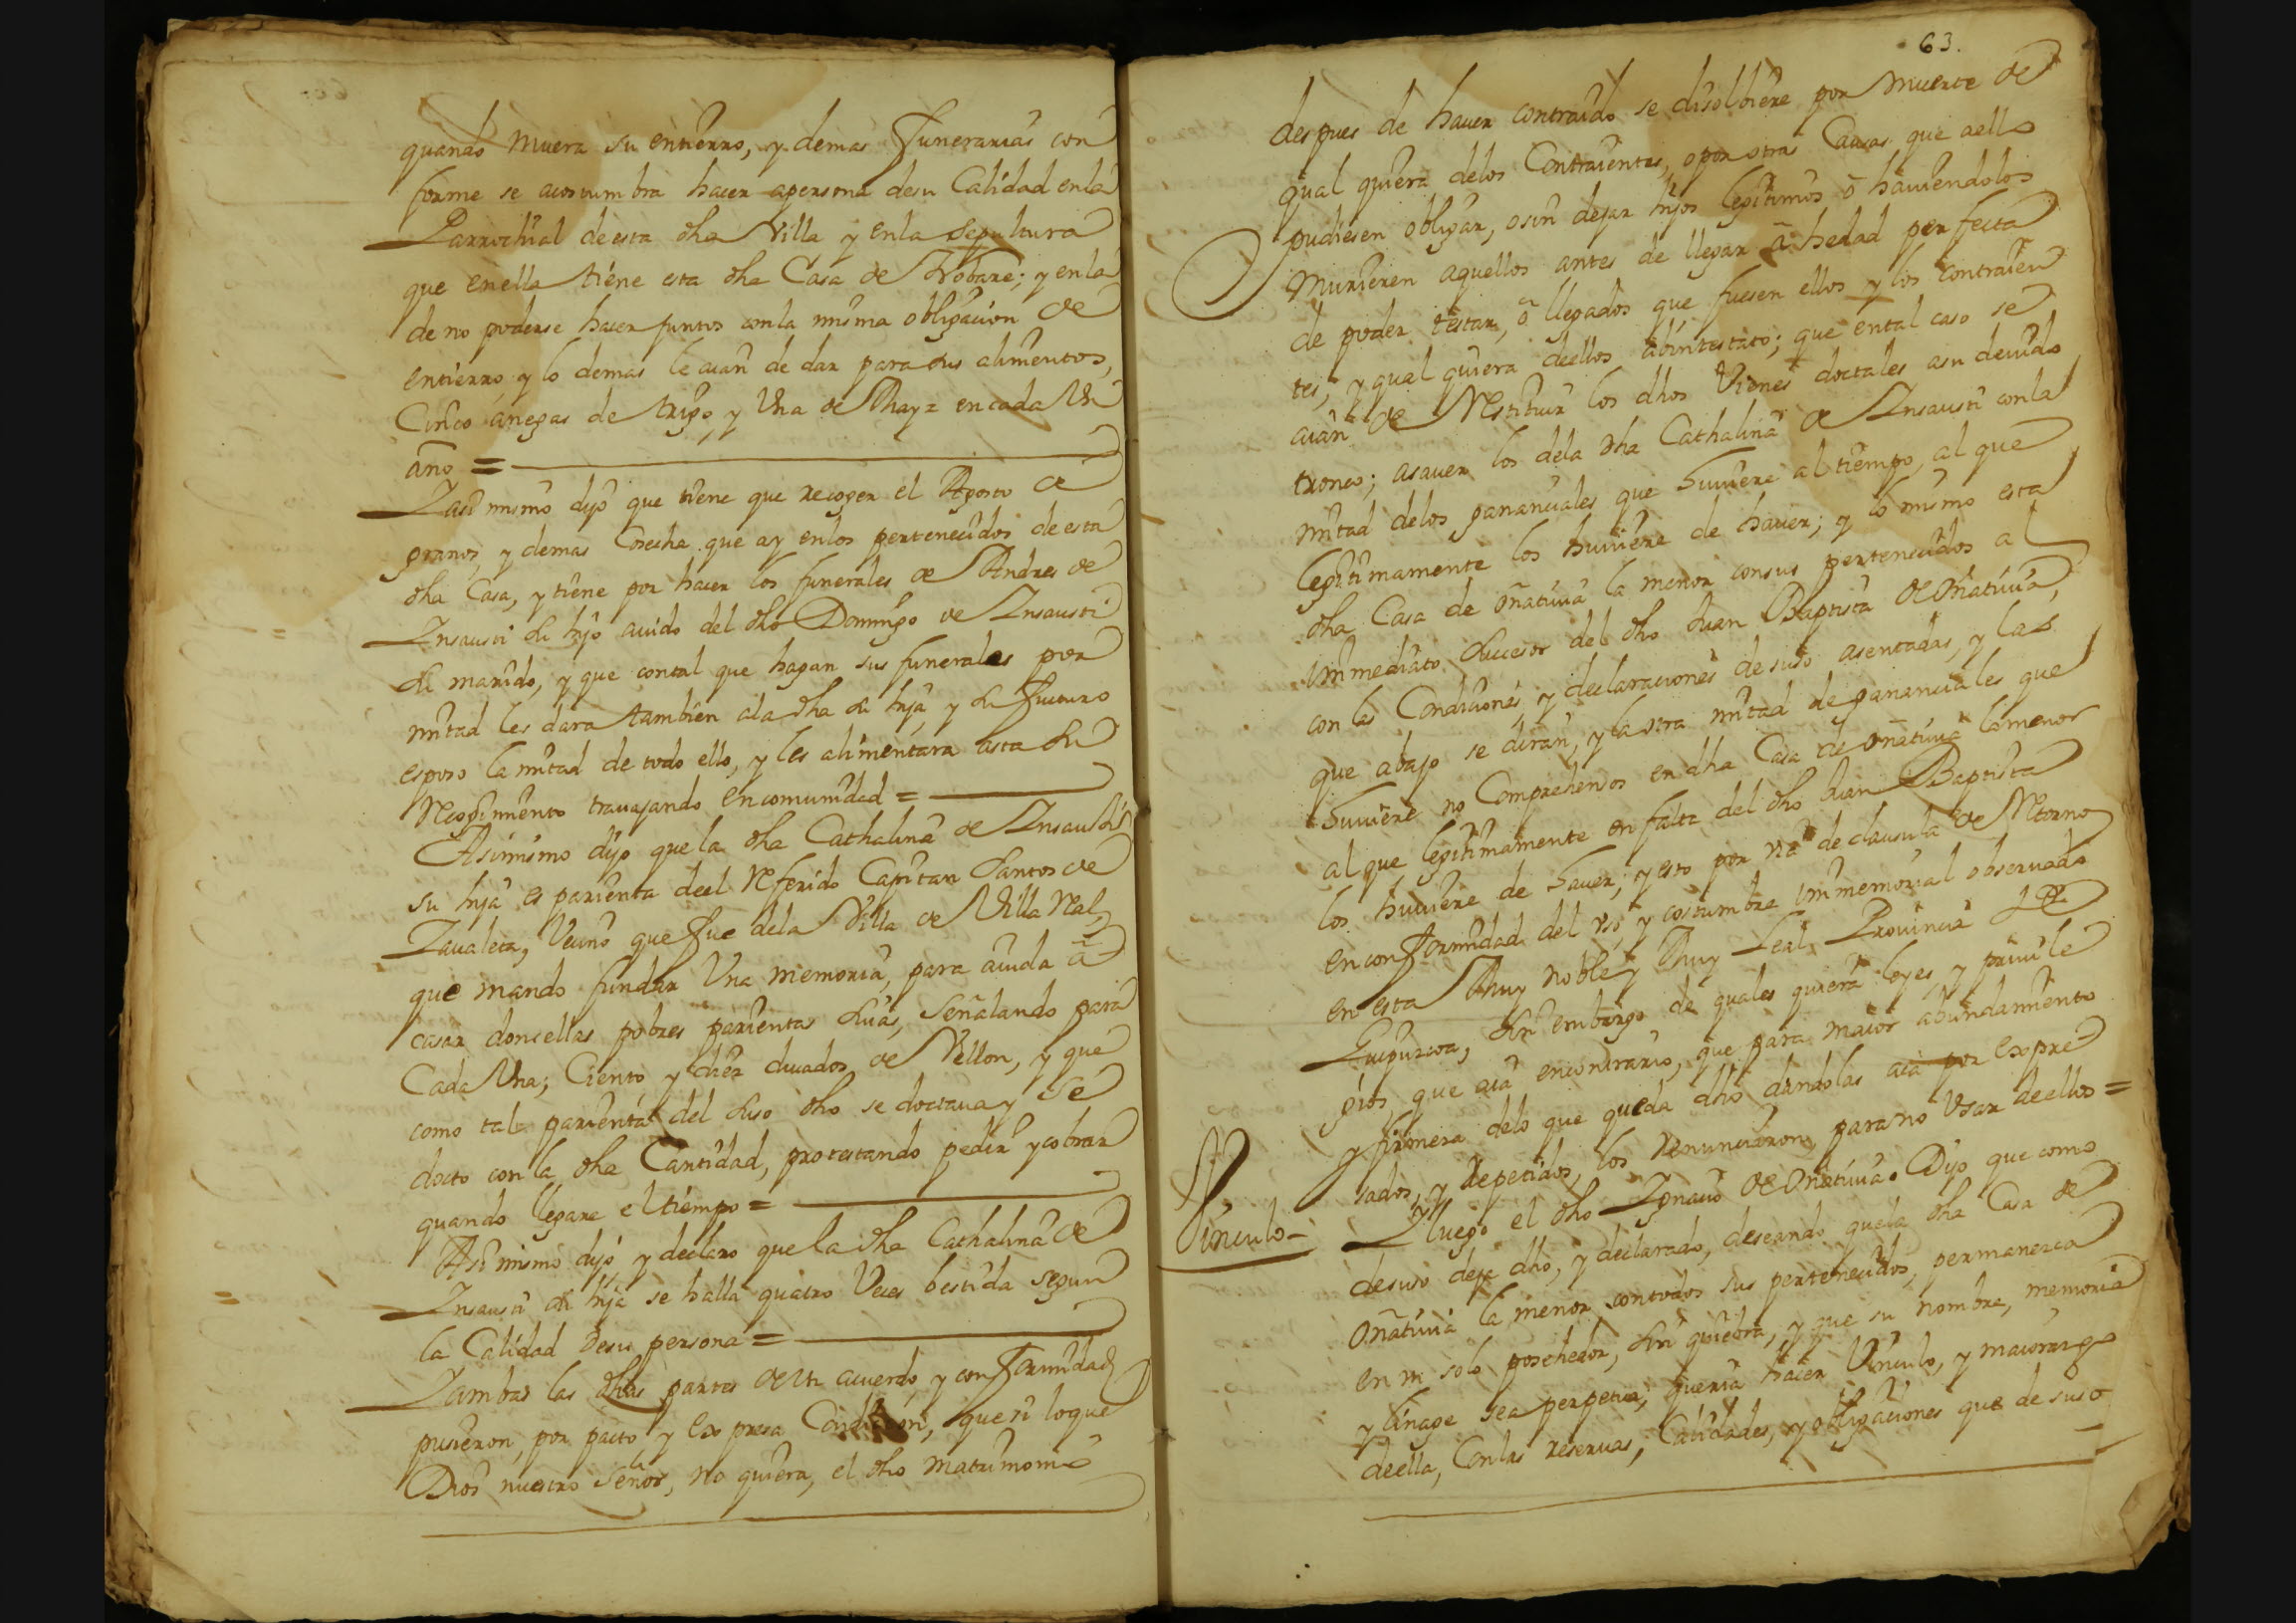 quando muera su entierro, y demas funerarias con
forme se acostumbra hacer apersona desu Calidad enla
Parrochial de esta dha Villa y enla sepultura
que enella tiene esta dha Casa de ; y enla
de no poderse hacer juntos conla misma obligacion de
entierro, y lo demas le aian de dar para sus alimentos,
Cinco anegas de trigo, y Una de Mayz encada Un
año =
Yasi mismo dijo que tiene que recoger el Agosto de
granos, y demas Cosecha que ay enlos pertenecidos de esta
dha Casa, y tiene por hacer los funerales de Andres de
Insausti su hijo auido del dho Domingo de Insausti
su marido, y que contal que hagan sus funerales por
mitad les dara tambien ala dha su hija y su futuro
esposo la mitad de todo ello, y les alimentara asta su
Recogimiento trauajando encomunidad =
Asimismo dijo que la dha Cathalina de Insausti
su hija es parienta deel Referido Capitan Santos de
Zaualeta, Vecino que fue dela Villa de Villa Real,
que mando fundar Una memoria, para aiuda à
casar doncellas pobres parientas suias, señalando para
Cada Una; Ciento y diez ducados de Vellon, y que
como tal parienta del suso dho se doctaua y se
docto con la dha Cantidad, protestando pedir y cobrar
quando llegare el tiempo =
Asi mismo dijo, y declaro que la dha Cathalina de
Insausti su hija se halla quatro Veces bestida segun
la Calidad desu persona =
Yambas las dhas partes de Un acuerdo y conformidad
pusieron, por pacto, y expresa Condicion, que si loque
Dios nuestro Señor, no quiera, el dho matrimonio
63.
despues de hauer contraido se disolbiere por muerte de
qual quiera delos Contraientes, opor otras Causas que aello
pudiesen obligar, osin dejar hijos legitimos ò hauiendolos
murieren aquellos antes de llegar à hedad perfecta
de poder testar, ò llegados que fuesen ellos y los contraien
tes, y qual quiera dellos abintestato; que ental caso se
aian de Restituir los dhos Vienes doctales asu deuido
tronco; asauer los dela dha Cathalina de Insausti conla
mitad delos gananciales que huuiere al tiempo, al que
legitimamente los huuiere de hauer; y lo mismo esta
dha Casa de oñatiuia la menor consus pertenecidos al
immediato subcesor del dho Juan Baptista de Oñatiuia,
con las Condiciones, y declaraciones desuso asentadas, y las
que abajo se diran, y la otra mitad de gananciales que
huuiere no Comprehensos en dha Casa de oñatiuia lamenor
al que legitimamente en falta del dho Juan Baptista
los huuiere de hauer; y esto por via de clausula de Retorno
en conformidad del uso y costumbre immemorial obseruada
en esta Muy noble y Muy Leal Prouincia de
Guipuzcoa, sin embargo de quales quiera leyes, y priuile
gios, que aia encontrario, que para maior abundamiento
y firmeza delo que queda dho dandolas aia por expre
sados, y repetidos, los renunciaron, para no Usar deellos =
Vinculo -
Y luego el dho Ignacio de Oñatiuia. Dijo que como
desuso deja dho, y declarado, deseando quela dha Casa de
Oñatiuia la menor contodos sus pertenecidos, permanezca
en un solo posehedor, sin quiebra, y que su nombre, memoria
y linage sea perpetua; queria hacer Vinculo, y maiorazgo
deella, Conlas reseruas, Calidades, y obligaciones que de suso